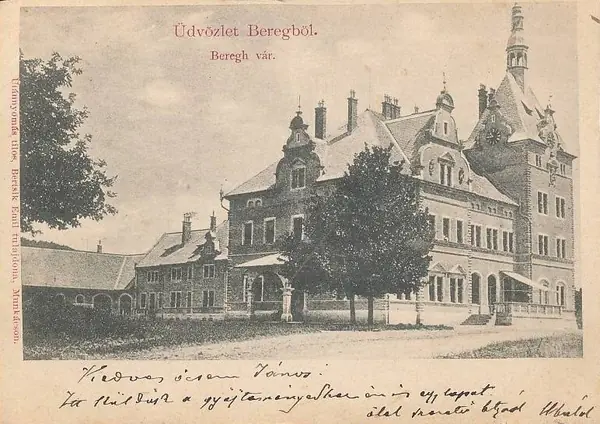 Üdvözlet Beregből.
Beregh vár.
Utánnyomás tilos, Bertsik Emil tulajdona, Munkácson.
Kedves öcsém János!
Itt küldök a gyűjteményedhez én is egy lapot
ölel szerető bátyád